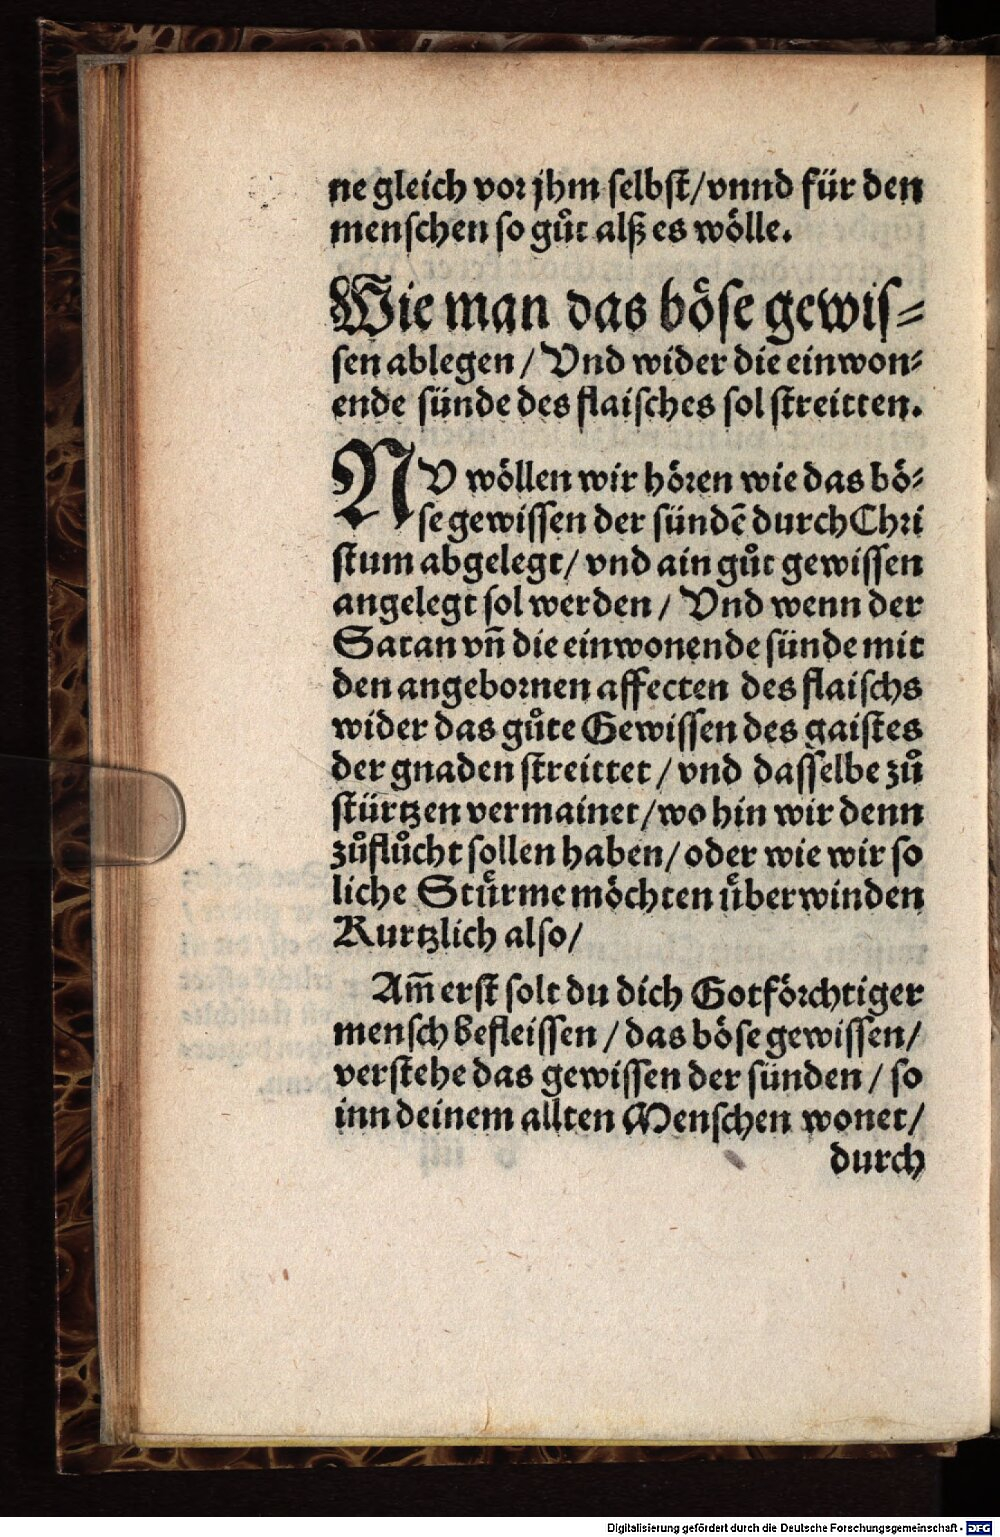 ne gleich vor jhm selbst/vnnd für den
menschen so gůt alß es wölle.
Wie man das böse gewis⸗
sen ablegen / Vnd wider die einwon⸗
ende sünde des flaisches sol streitten.
NV wöllen wir hören wie das bö⸗
se gewissen der sündẽ durch Chri
stum abgelegt/ vnd ain gůt gewissen
angelegt sol werden / Vnd wenn der
Satan vñ die einwonende sünde mit
den angebornen affecten des flaischs
wider das gůte Gewissen des gaistes
der gnaden streittet / vnd dasselbe zů
stürtzen vermainet /wo hin wir denn
zůflůcht sollen haben/ oder wie wir so
liche Stürme möchten überwinden
Kurtzlich also/
Am̃ erst solt du dich Gotförchtiger
mensch befleissen / das böse gewissen/
verstehe das gewissen der sünden / so
inn deinem allten Menschen wonet/
durch
Digitalisierung gefördert durch die Deutsche Forschungsgemeinschaft - DFG